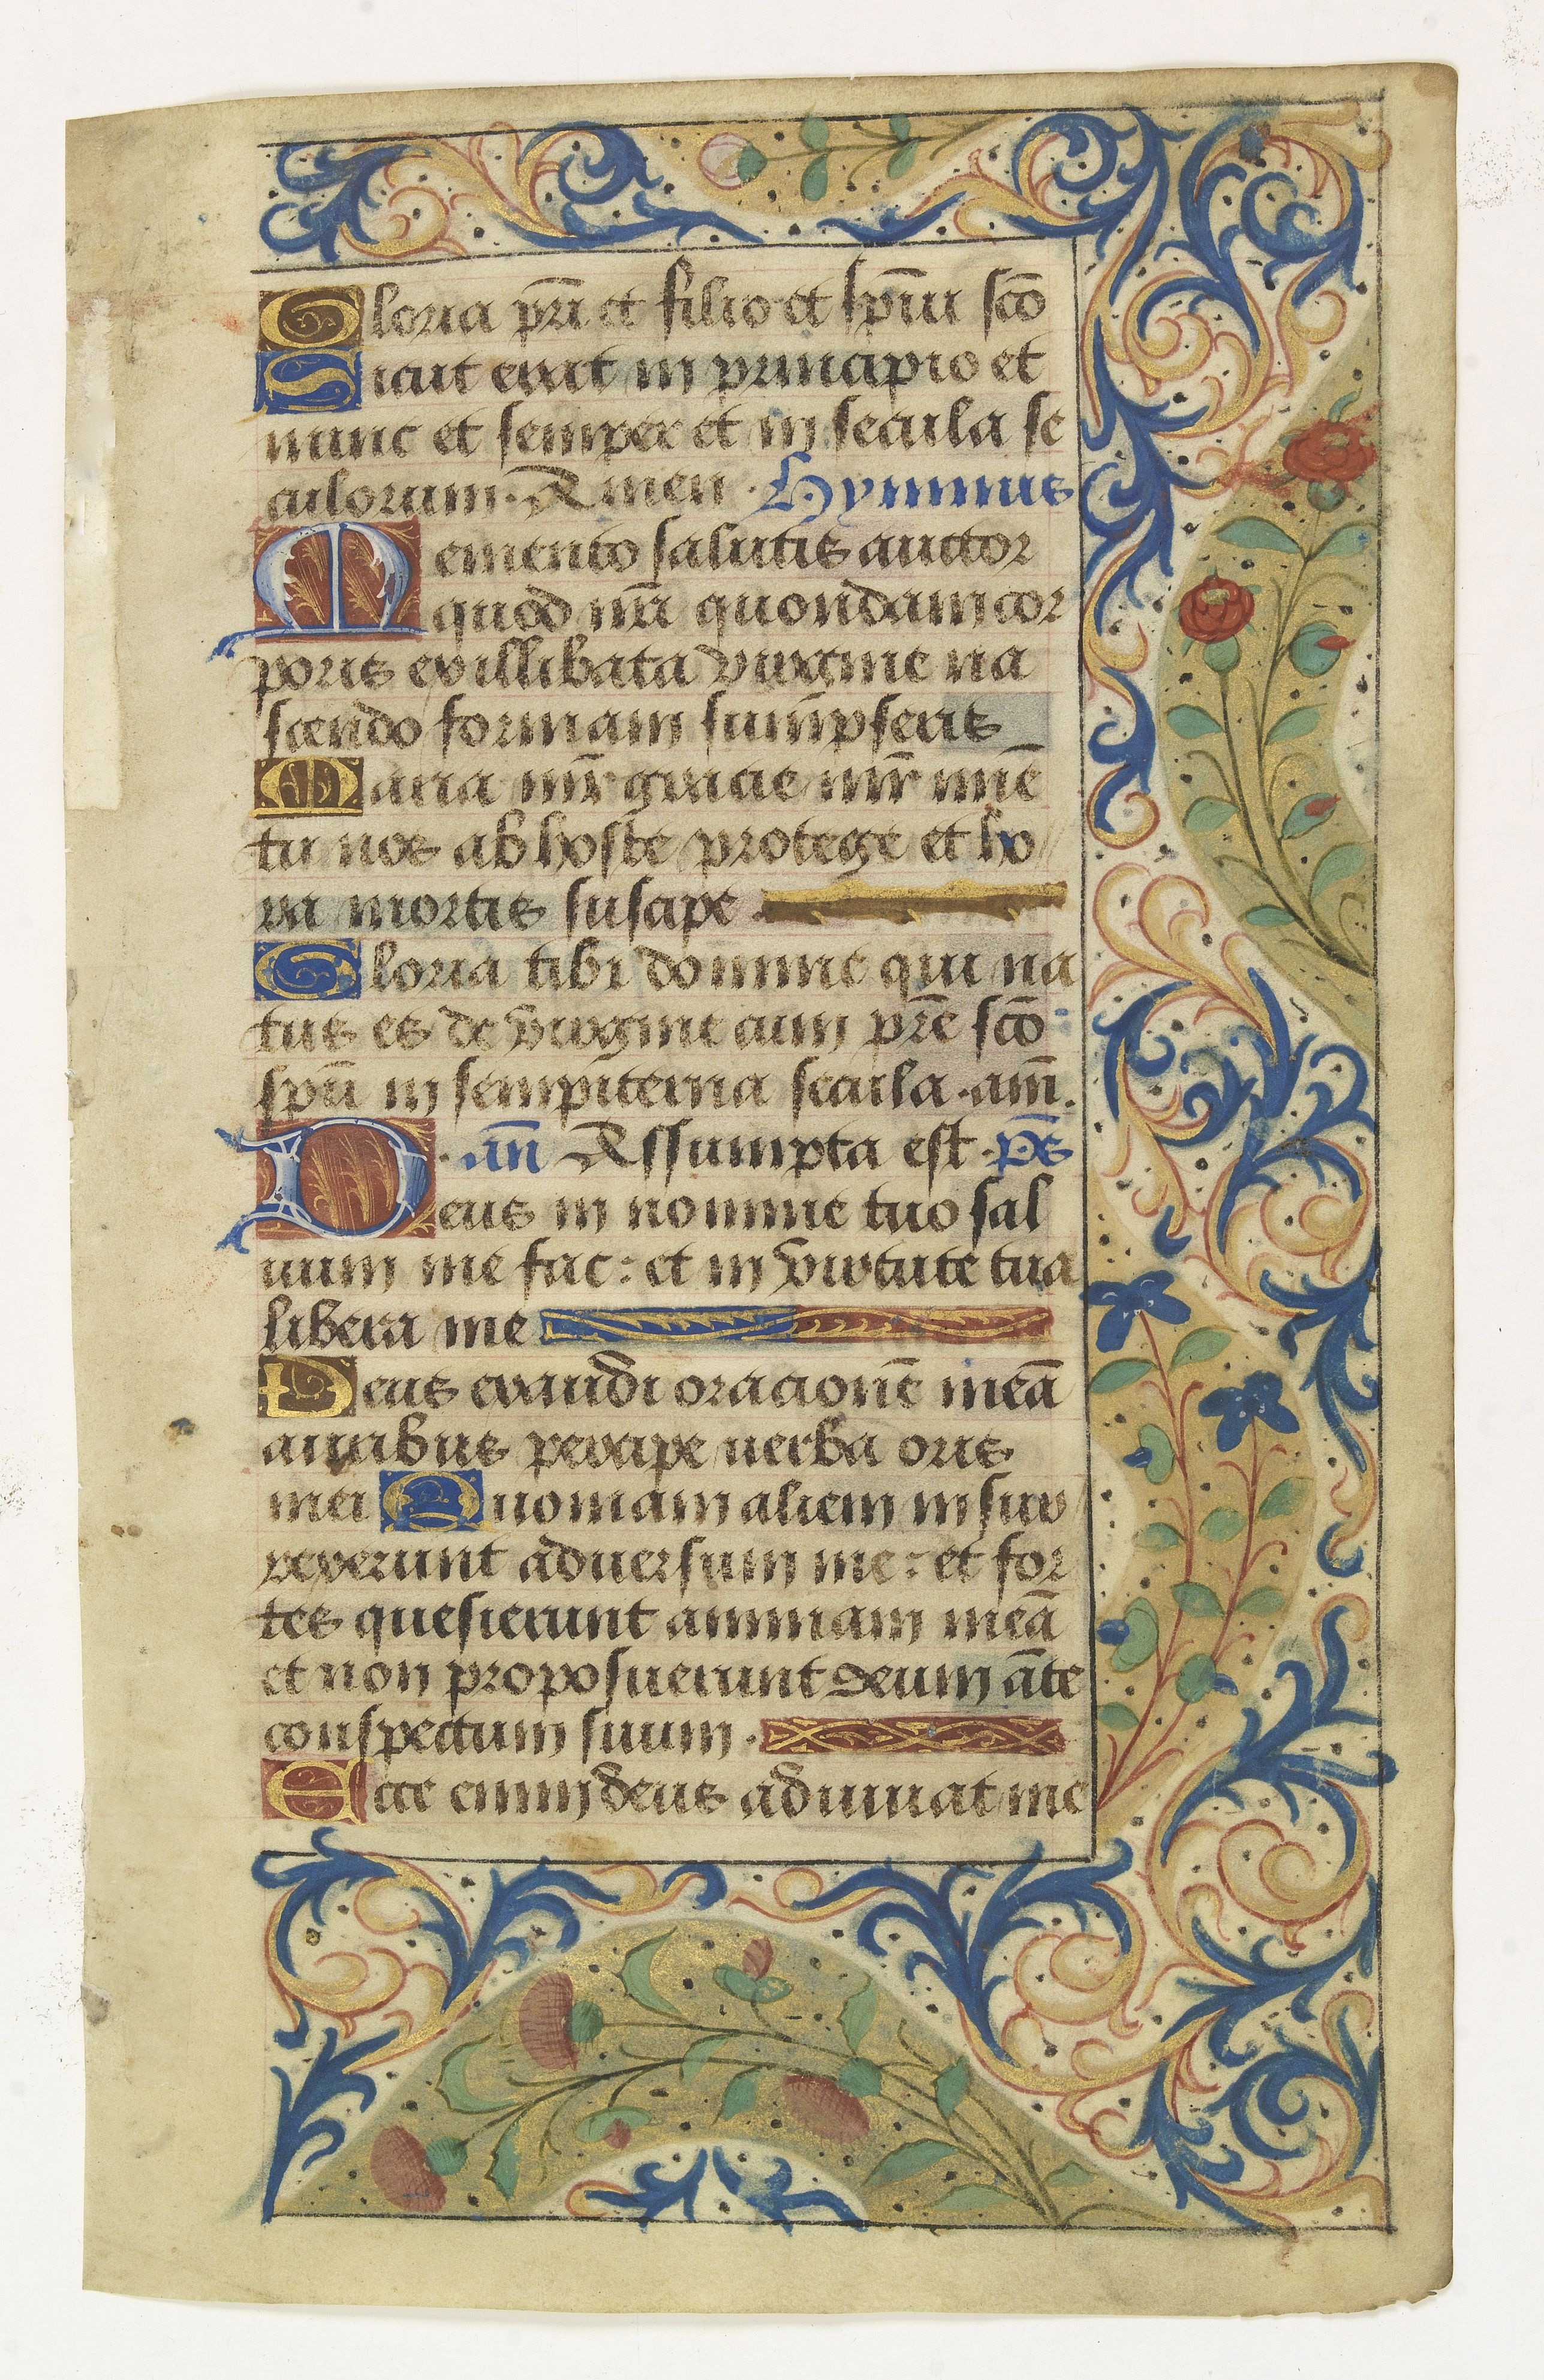 Gloria pr̄i et filio et sp̄iui sc̄o
Sicut erat in principio et
nunc et semper et in secula se
culorum. Amen. Hymnus
Memento salutis auctor
quod nr̄i quondam cor
poris ex illibata virgine na
scendo formam sum̄pseris
Maria mr̄ gracie mr̄ mīe
tu nos ab hoste protege et ho
ra mortis suscipe.
Gloria tibi domine qui na
tus es de virgine cum pr̄e sc̄o
sp̄u in sempiterna secula. am̄.
an̄ Assumpta est. p̄s
Deus in nomine tuo sal
uum me fac: et in virtute tua
libera me
Deus exaudi oracionē meā
auribus percipe uerba oris
mei Quoniam alieni insur
rexerunt aduersum me: et for
tes quesierunt animam meā
et non proposuerunt deum āte
conspectum suum.
Ecce enim deus adiuuat me